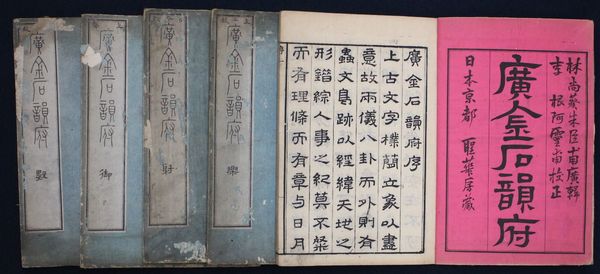 林尚葵朱臣甫廣輯
李根阿靈甫校正
廣金石韻府
日本京都 聖華房藏
廣金石韻府序
上古文字樸簡立象以盡
意故兩儀八卦而外則有
蟲文鳥跡以經緯天地之
形錯綜人事之紀莫不粲
而有理條而有章與日月
廣金石韻府 樂
廣金石韻府 射
廣金石韻府 御
廣金石韻府 數